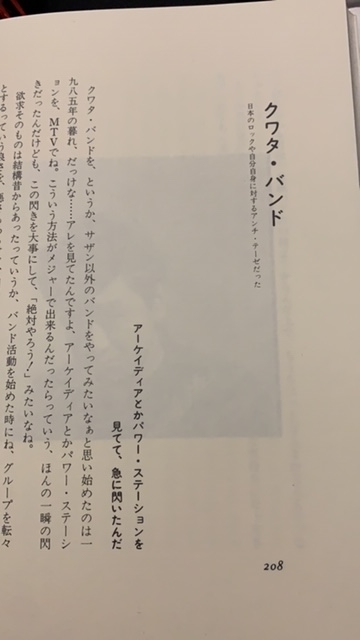 クワタ・バンド
日本のロックや自分自身に対するアンチ・テーゼだった
アーケイディアとかパワー・ステーションを
見てて、急に閃いたんだ
クワタ・バンドを、というか、サザン以外のバンドをやってみたいなぁと思い始めたのは一
九八五年の暮れ、だっけな……アレを見てたんですよ、アーケイディアとかパワー・ステーシ
ョンを、MTVでね。こういう方法がメジャーで出来るんだったらっていう、ほんの一瞬の閃
きだったんだけども、この閃きを大事にして、「絶対やろう!」みたいなね。
欲求そのものは結構昔からあったっていうか、バンド活動を始めた時にね、グループを転々
とするっていう
208